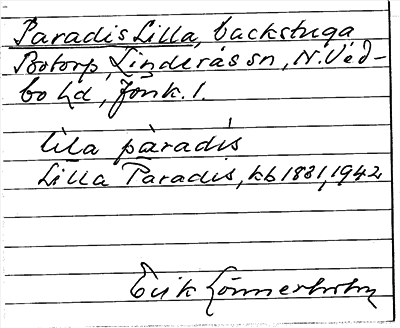 Paradis Lilla, backstuga
Botorp, Linderås sn, N. Ved-
bo hd, Jönk. l.
lìla pàradís
Lilla Paradis, kb 1831, 1942
Erik Lönnerholm